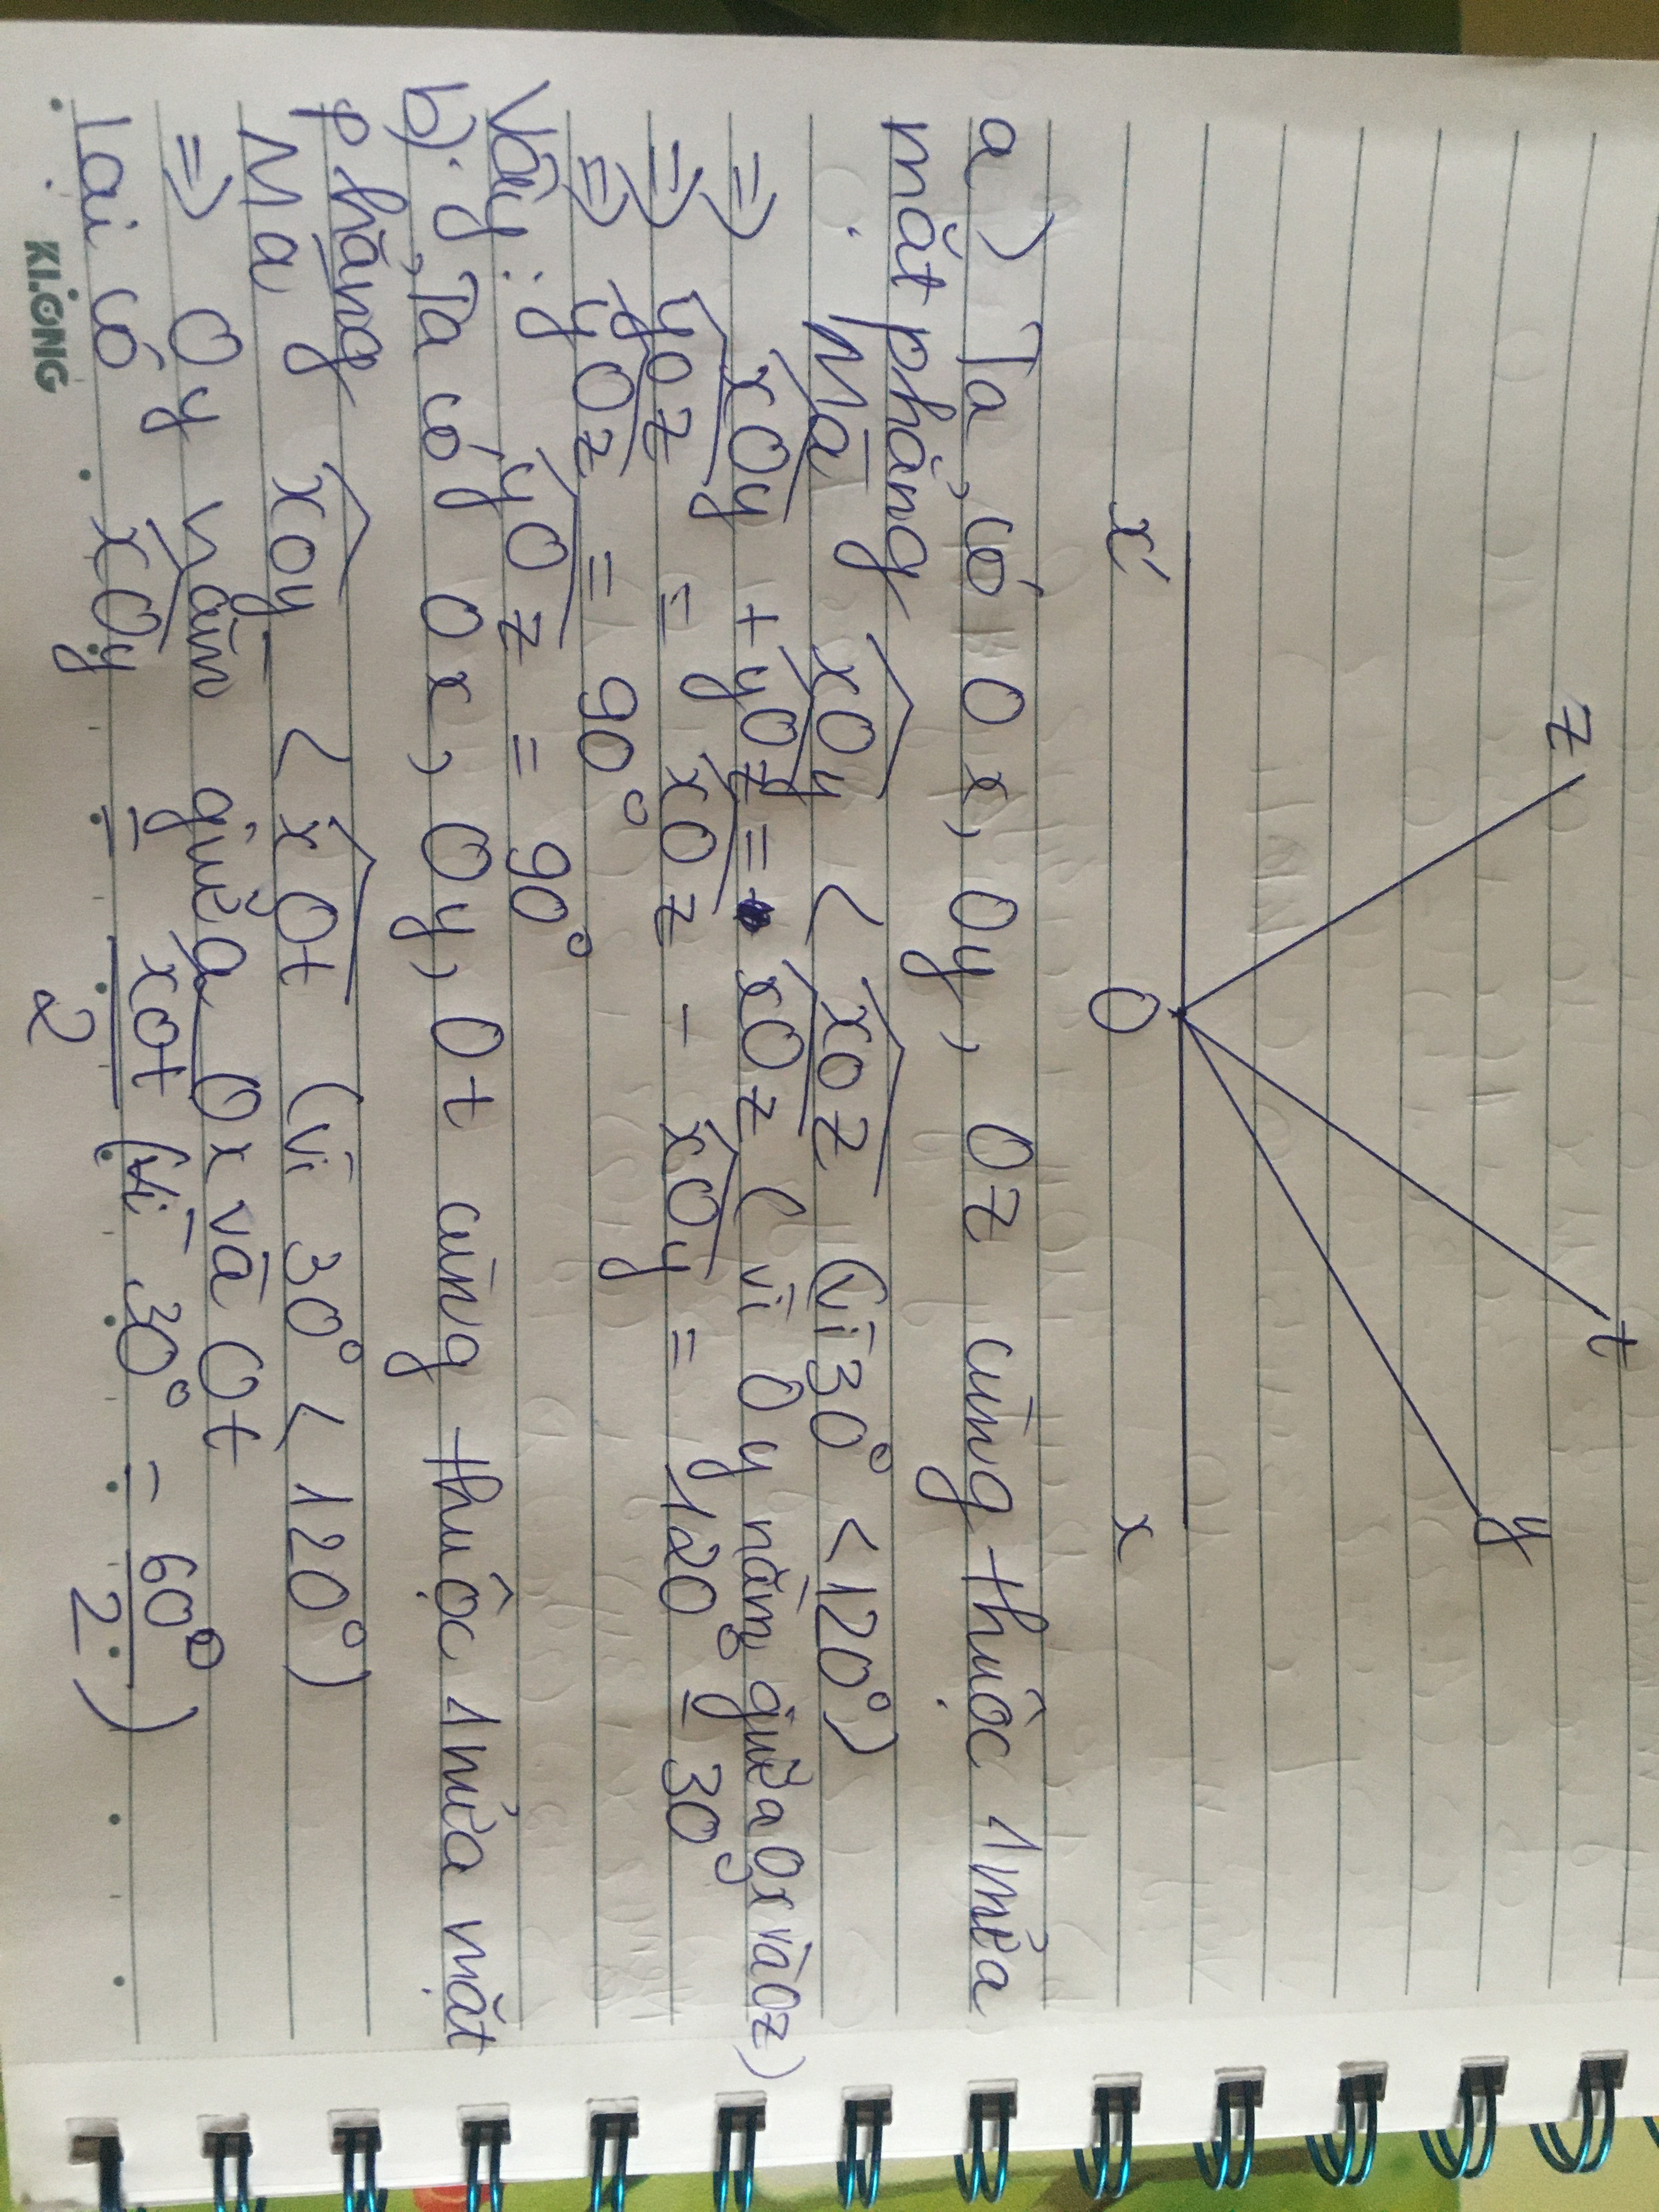 z
t
y
x'
O
x
a) Ta có Ox, Oy, Oz cùng thuộc 1 nửa
mặt phẳng
Mà xOy < xOz (vì 30° < 120°)
=> xOy + yOz = xOz (vì Oy nằm giữa Ox và Oz)
=> yOz = xOz - xOy = 120° - 30°
=> yOz = 90°
Vậy: yOz = 90°
b). Ta có Ox, Oy, Ot cùng thuộc 1 nửa mặt
phẳng
Mà xOy < xOt (vì 30° < 120°)
=> Oy nằm giữa Ox và Ot
Lại có xOy = xOt/2 (vì 30° = 60°/2)
KLONG